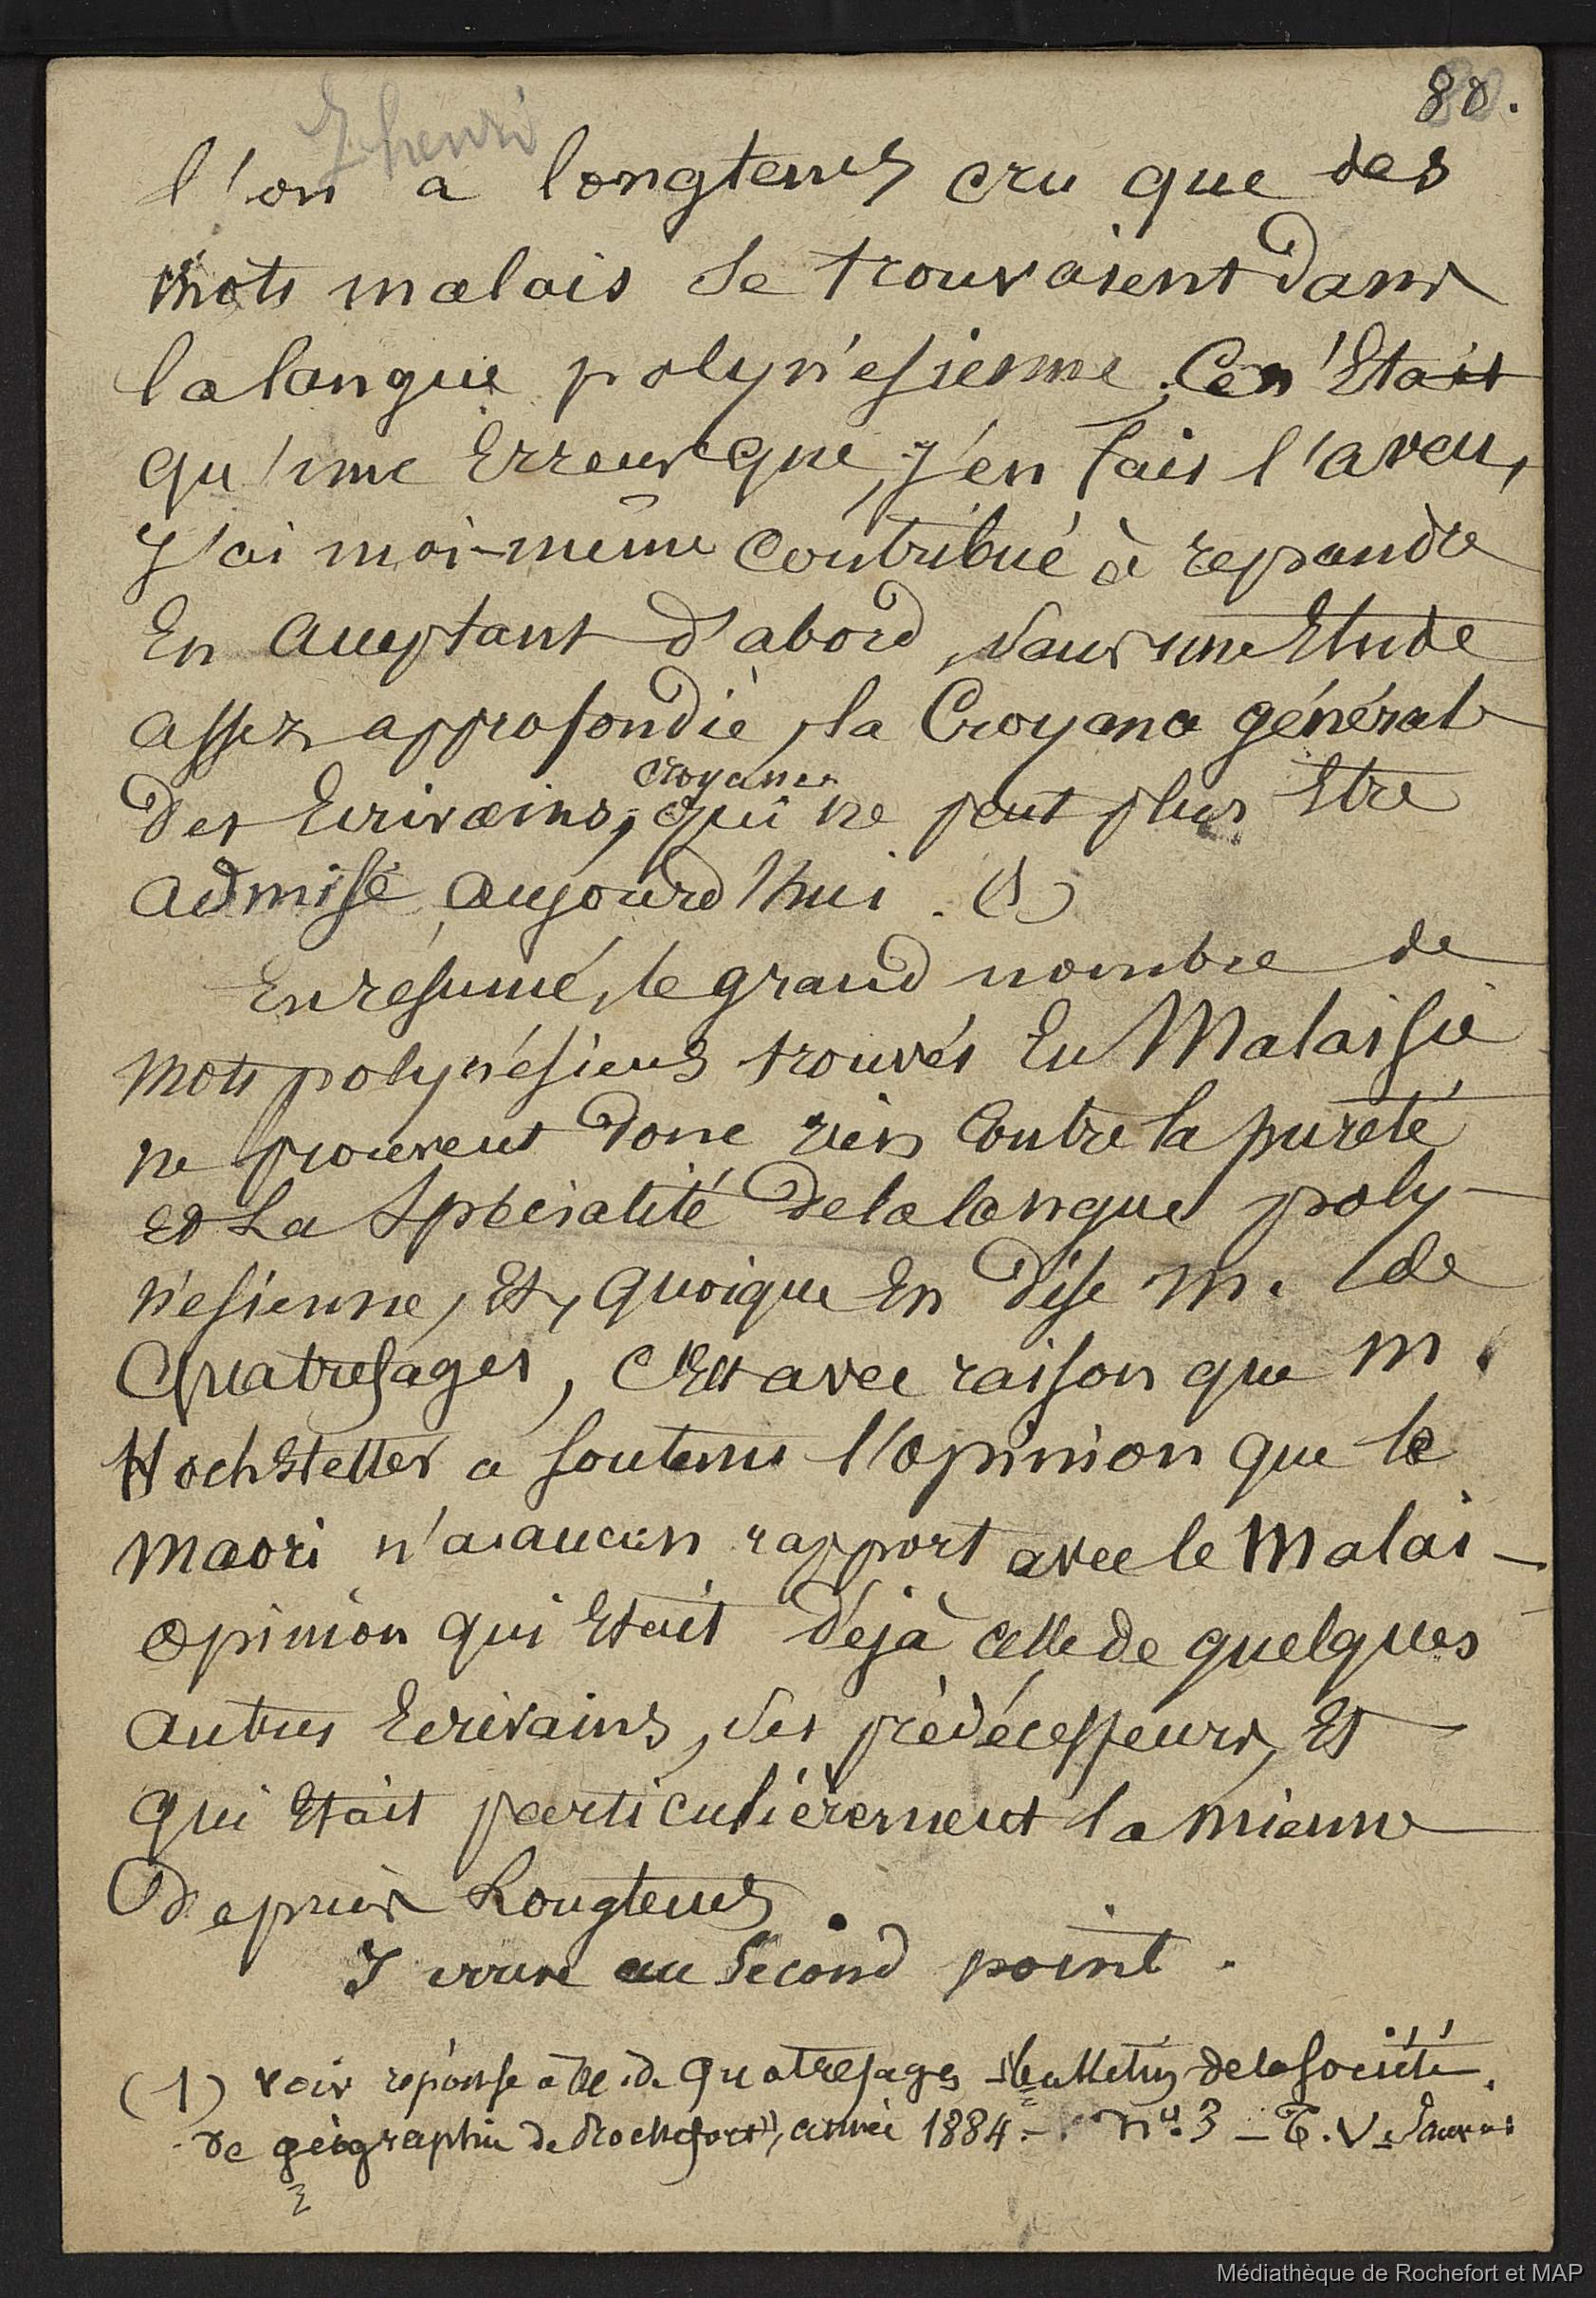 80.
Zhenri
l'on a longtems cru que des
mots malais se trouvaient dans
la langue polynésienne. Ce n'Etait
qu'une Erreur que, j'en fais l'aveu,
j'ai moi-même contribué à repandre
En acceptant d'abord, sans une Etude
assez approfondie, la Croyance générale
des Ecrivains, croyance
qui ne peut plus Etre
admise aujourd'hui. (1)
En résumé, le grand nombre de
mots polynésiens trouvés En Malaisie
ne prouvent donc rien Contre la pureté
et La Spécialité de la langue poly-
nésienne, Et, quoique En dise m. de
Quatrefages, C'Est avec raison que m.
Hochstetter a soutenu l'opinion que le
maori n'a aucun rapport avec le Malais -
opinion qui Etait déjà celle de quelques
autres Ecrivains, ses prédécesseurs, Et
qui Etait particulièrement la mienne
depuis Longtems.
J'arrive au Second point.
(1) voir réponse à M. de Quatrefages "bulletin de la Société
de géographie de Rochefort", année 1884 - Nº. 3 - T. V -
Médiathèque de Rochefort et MAP